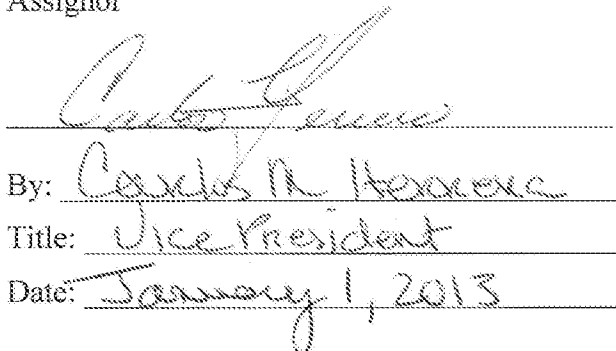 Assignor
By: Carlos M Herrera
Title: Vice President
Date: January 1, 2013